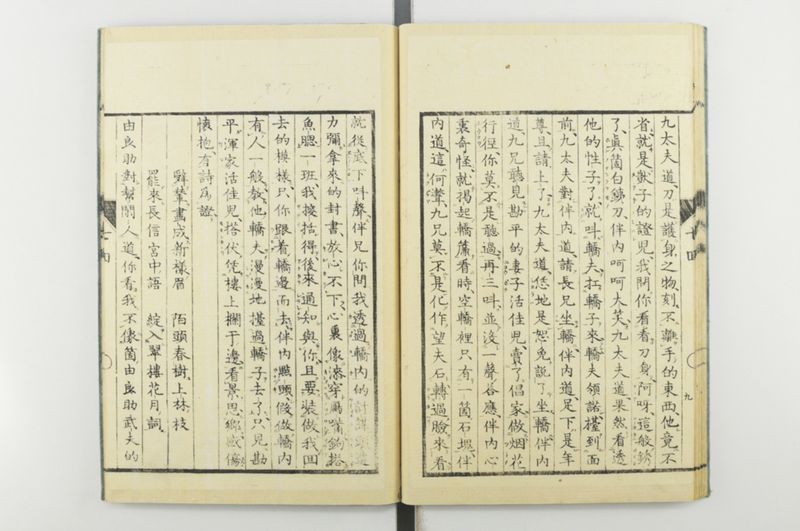 九太夫道刀是護身之物刻不離手的東西他竟不
省就是獃子的證兒我開你看看刀身阿呀這般銹
了眞箇白銕刀伴內呵呵大笑九太夫道果然看透
他的性子了就叫轎夫扛轎子來轎夫領諾擡到面
前九太夫對伴內道請長兄坐轎伴內道足下是年
尊且請上了九太夫道恁地是恕免說了坐轎伴內
道九兄聽見勘平的妻子活佳児賣了倡家做烟花
行徑你莫不是聽過再三叫並沒一聲答應伴內心
裏奇怪就揭起轎簾看時空轎裡只有一箇石塊伴
內道這何聿九兄莫不是化作望夫石轉過臉來看
就從底下叫聲伴兄你問我透過轎內的
力彌拿來的封書放心不下心裏像
魚腮一班我撿括得後來通知與你且要裝做我回
去的模樣只你跟着轎邊而去伴內點頭假做轎內
有人一般教他轎夫漫漫地擡過轎子去了只見勘
平渾家活佳児搭伏凭樓上攔于邊看景思鄉感傷
懷抱有詩爲證
辭輦書成新樣眉 陌頭春樹上林枝
罷來長信宮中語 綻入翠樓花月詞
由良助對幫閒人道你看我不像箇由良助武夫的
九